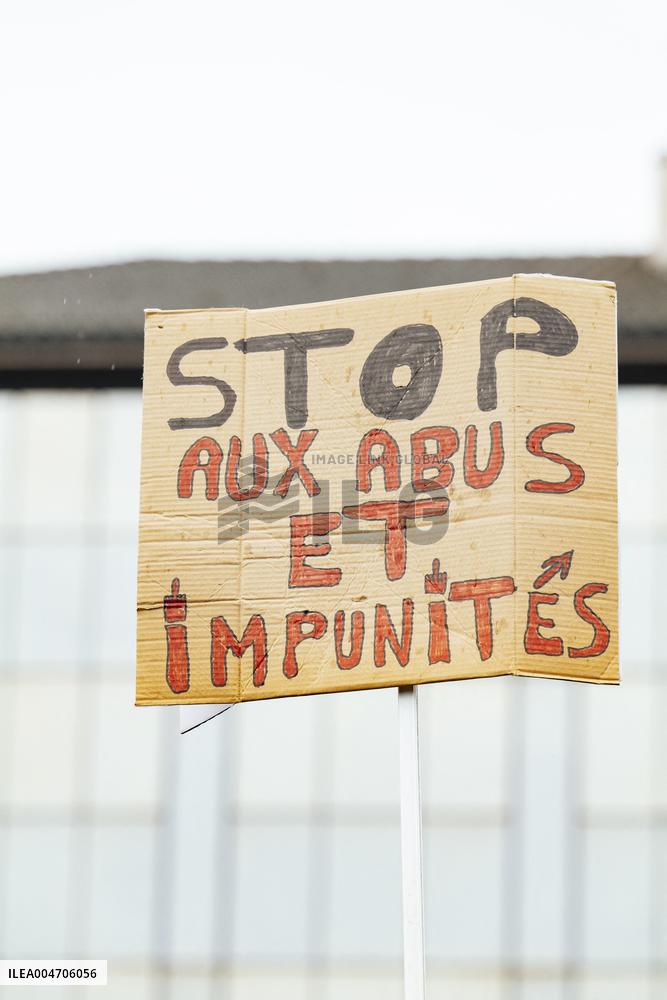 STOP
AUX ABUS
IMAGE LINK GLOBAL
ILG
ET
iMPUNiTÉS
ILEA004706056